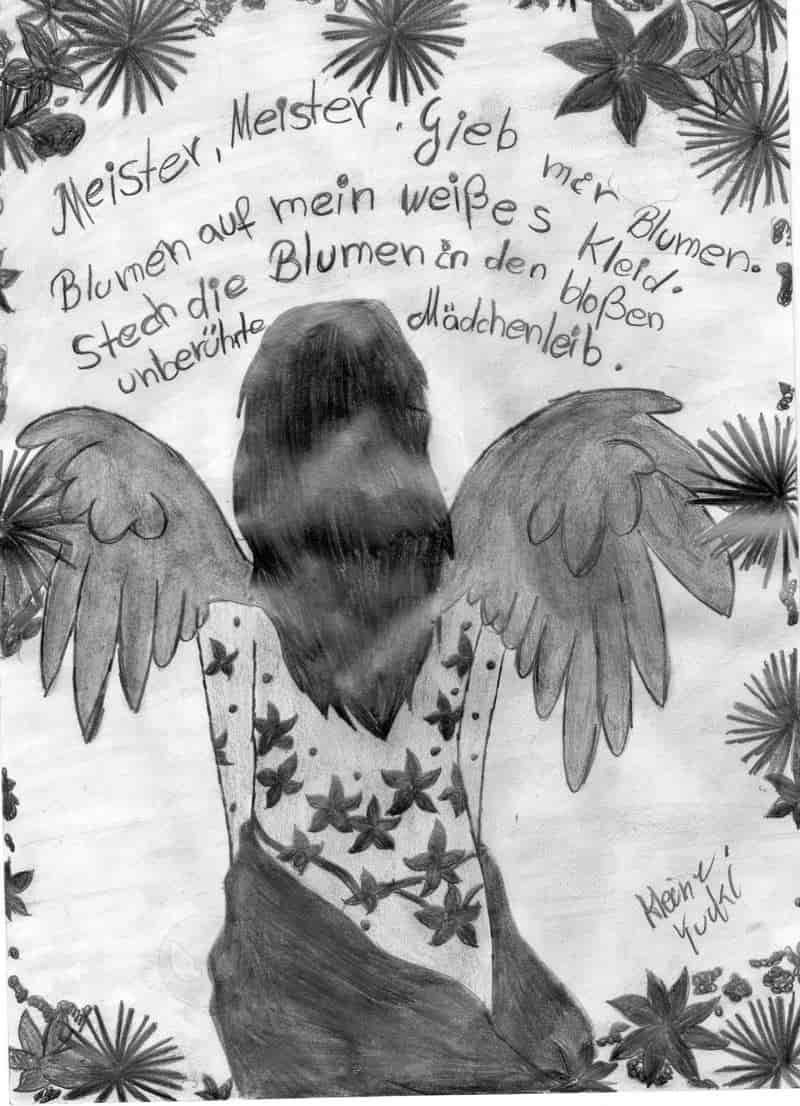 Meister, Meister. Gieb mir Blumen.
Blumen auf mein weißes Kleid.
Stech die Blumen in den bloßen
unberührte Mädchenleib.
kleine
Yucki